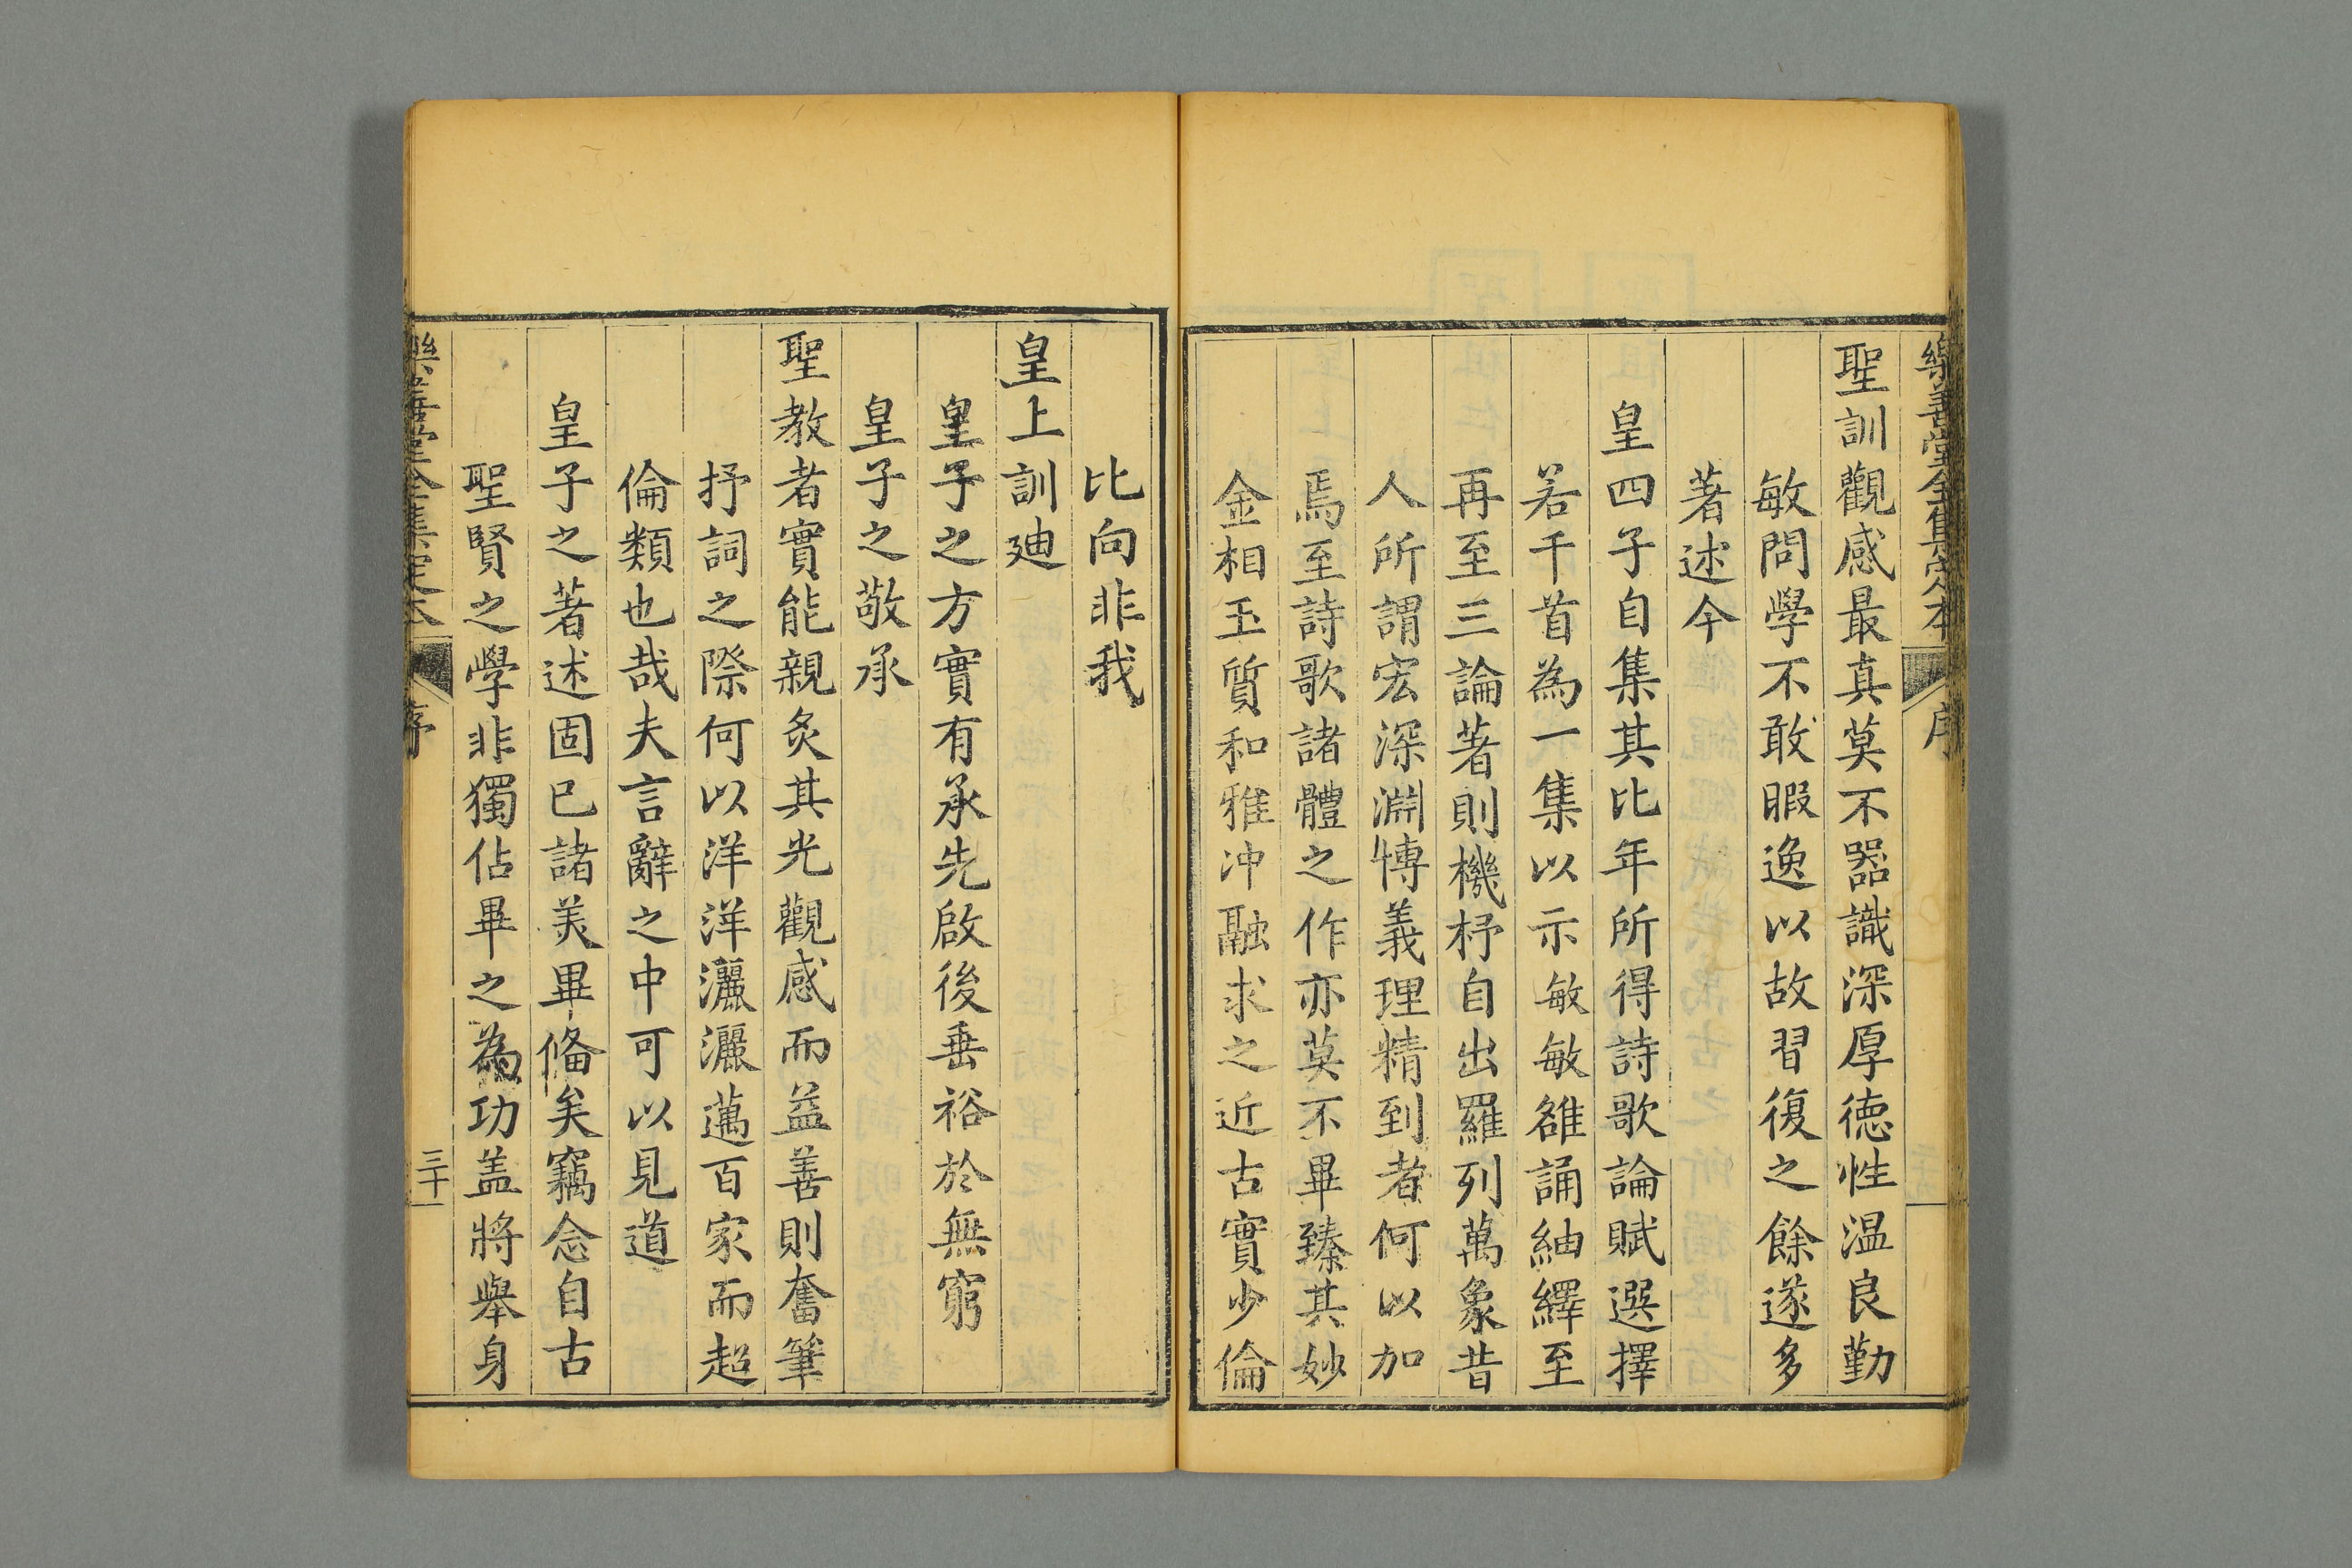 樂善堂全集定本 序
聖訓觀感最真莫不器識深厚德性温良勤
敏問學不敢暇逸以故習復之餘遂多
著述今
皇四子自集其比年所得詩歌論賦選擇
若干首為一集以示敏敏雒誦紬繹至
再至三論著則機杼自出羅列萬象昔
人所謂宏深淵博義理精到者何以加
焉至詩歌諸體之作亦莫不畢臻其妙
金相玉質和雅冲融求之近古實少倫
比向非我
皇上訓廸
皇子之方實有承先啟後垂裕於無窮
皇子之敬承
聖教者實能親炙其光觀感而益善則奮筆
抒詞之際何以洋洋灑灑邁百家而超
倫類也哉夫言辭之中可以見道
皇子之著述固已諸美畢偹矣竊念自古
聖賢之學非獨佔畢之為功盖將舉身
樂善堂全集定本 序 三十